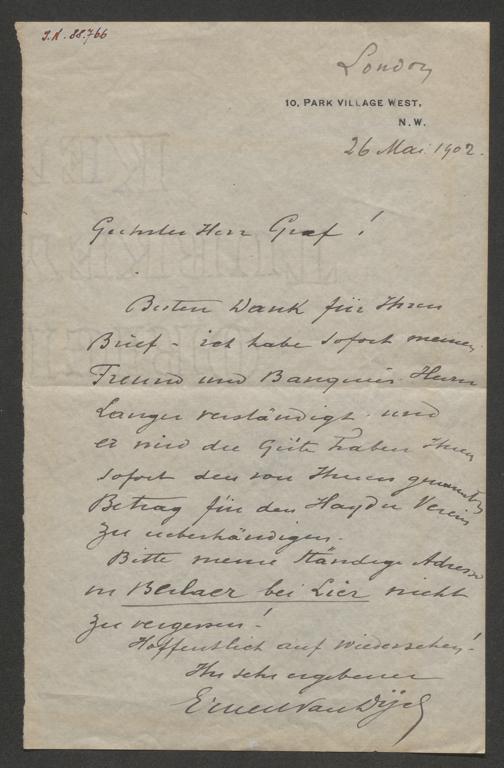 I.N. 88.766
London
10, PARK VILLAGE WEST,
N.W.
26 Mai 1902.
Geehrter Herr Graf!
Besten Dank für Ihren
Brief - ich habe sofort meinen
Freund und Banquier Herrn
Langer verständigt und
er wird die Güte haben Ihnen
sofort den von Ihnen genannten
Betrag für den Haydn Verein
zu ueberhändigen.
Bitte meine ständige Adresse
in Berlaer bei Lier nicht
zu vergessen!
Hoffentlich auf wiedersehen!
Ihr sehr ergebener
Ernest Van Dÿck